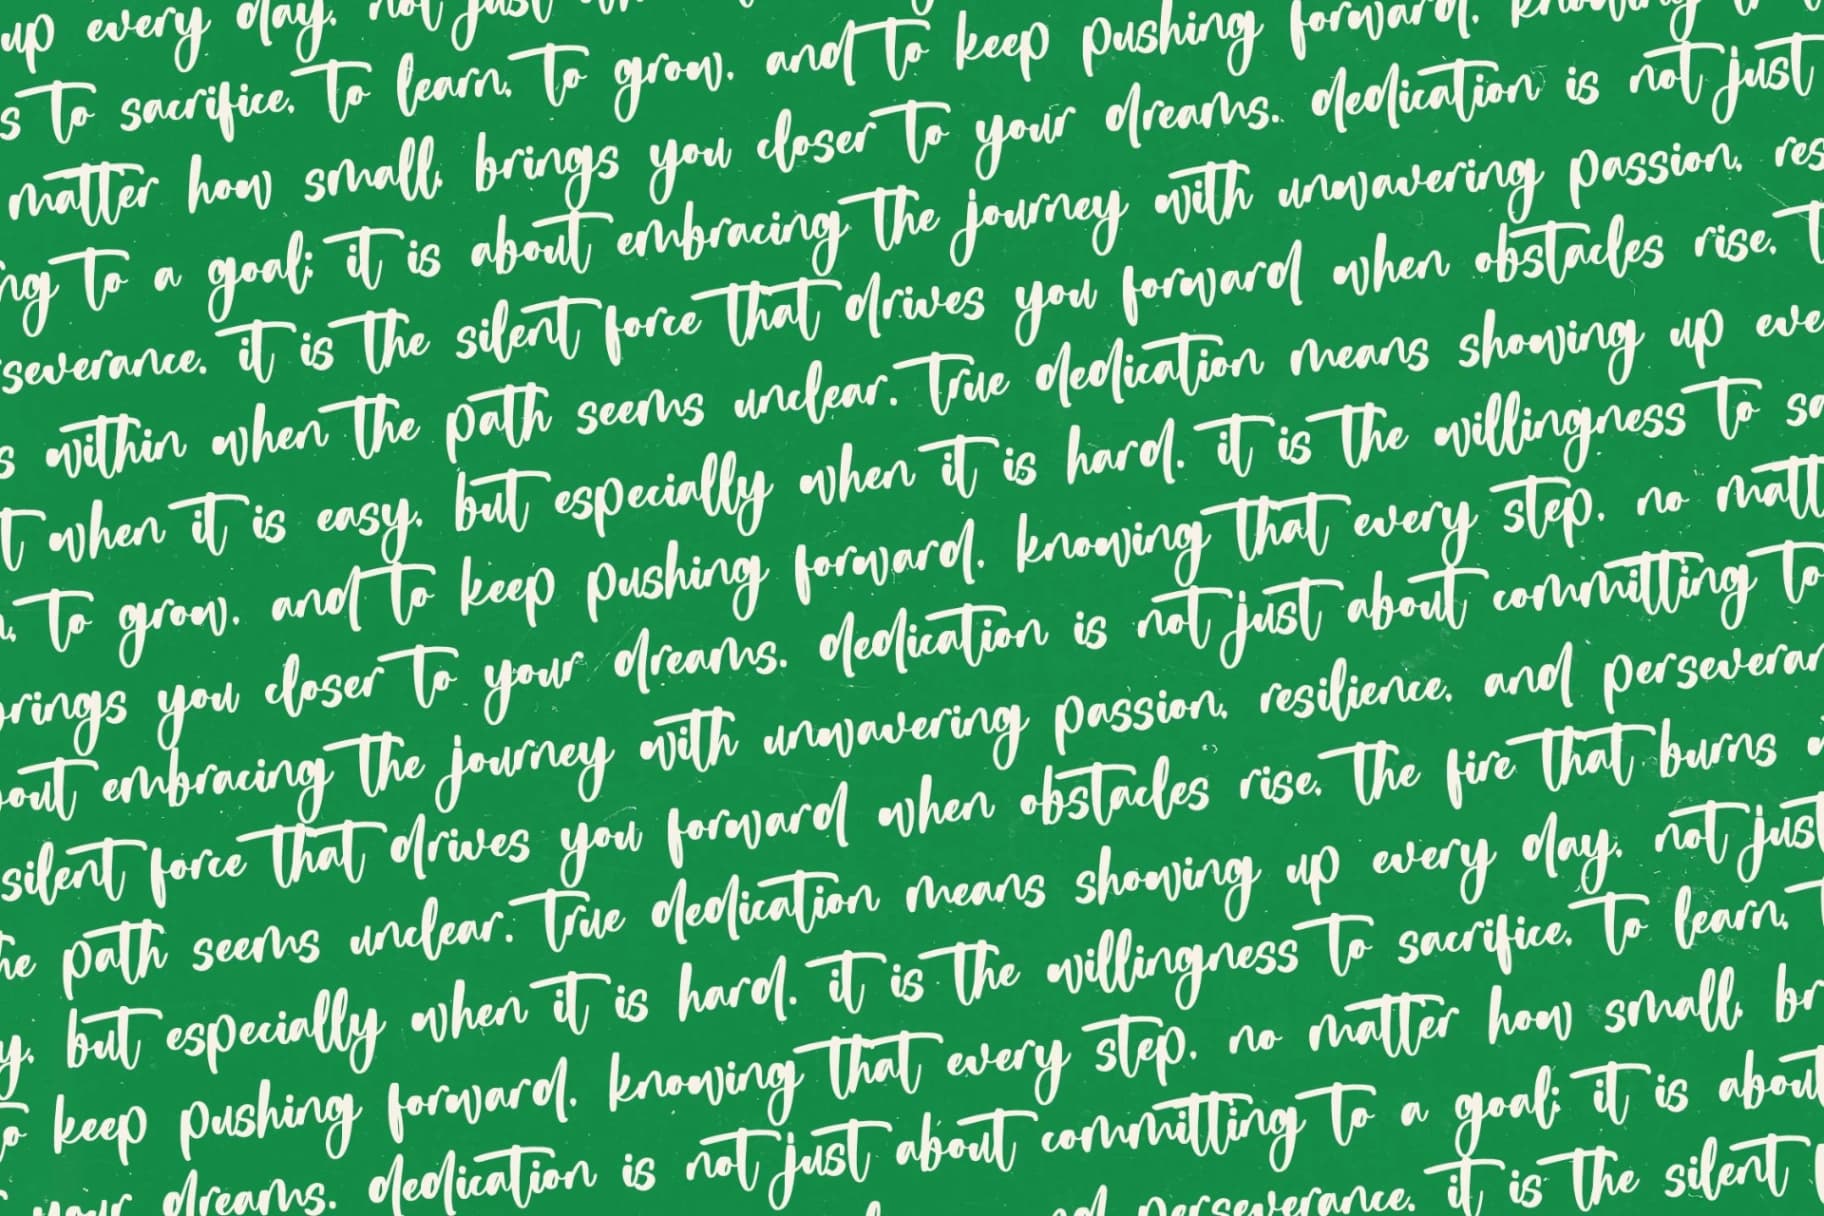 up every day, not just
s to sacrifice, to learn, to grow, and to keep pushing forward, knowing
matter how small, brings you closer to your dreams. dedication is not just
ng to a goal; it is about embracing the journey with unwavering passion, res
severance. it is the silent force that drives you forward when obstacles rise, t
s within when the path seems unclear. true dedication means showing up eve
t when it is easy, but especially when it is hard. it is the willingness to sa
n, to grow, and to keep pushing forward, knowing that every step, no matt
brings you closer to your dreams. dedication is not just about committing to
out embracing the journey with unwavering passion, resilience, and perseveran
silent force that drives you forward when obstacles rise, the fire that burns w
he path seems unclear. true dedication means showing up every day, not just
y, but especially when it is hard. it is the willingness to sacrifice, to learn, t
to keep pushing forward, knowing that every step, no matter how small, br
your dreams. dedication is not just about committing to a goal; it is about
d perseverance. it is the silent